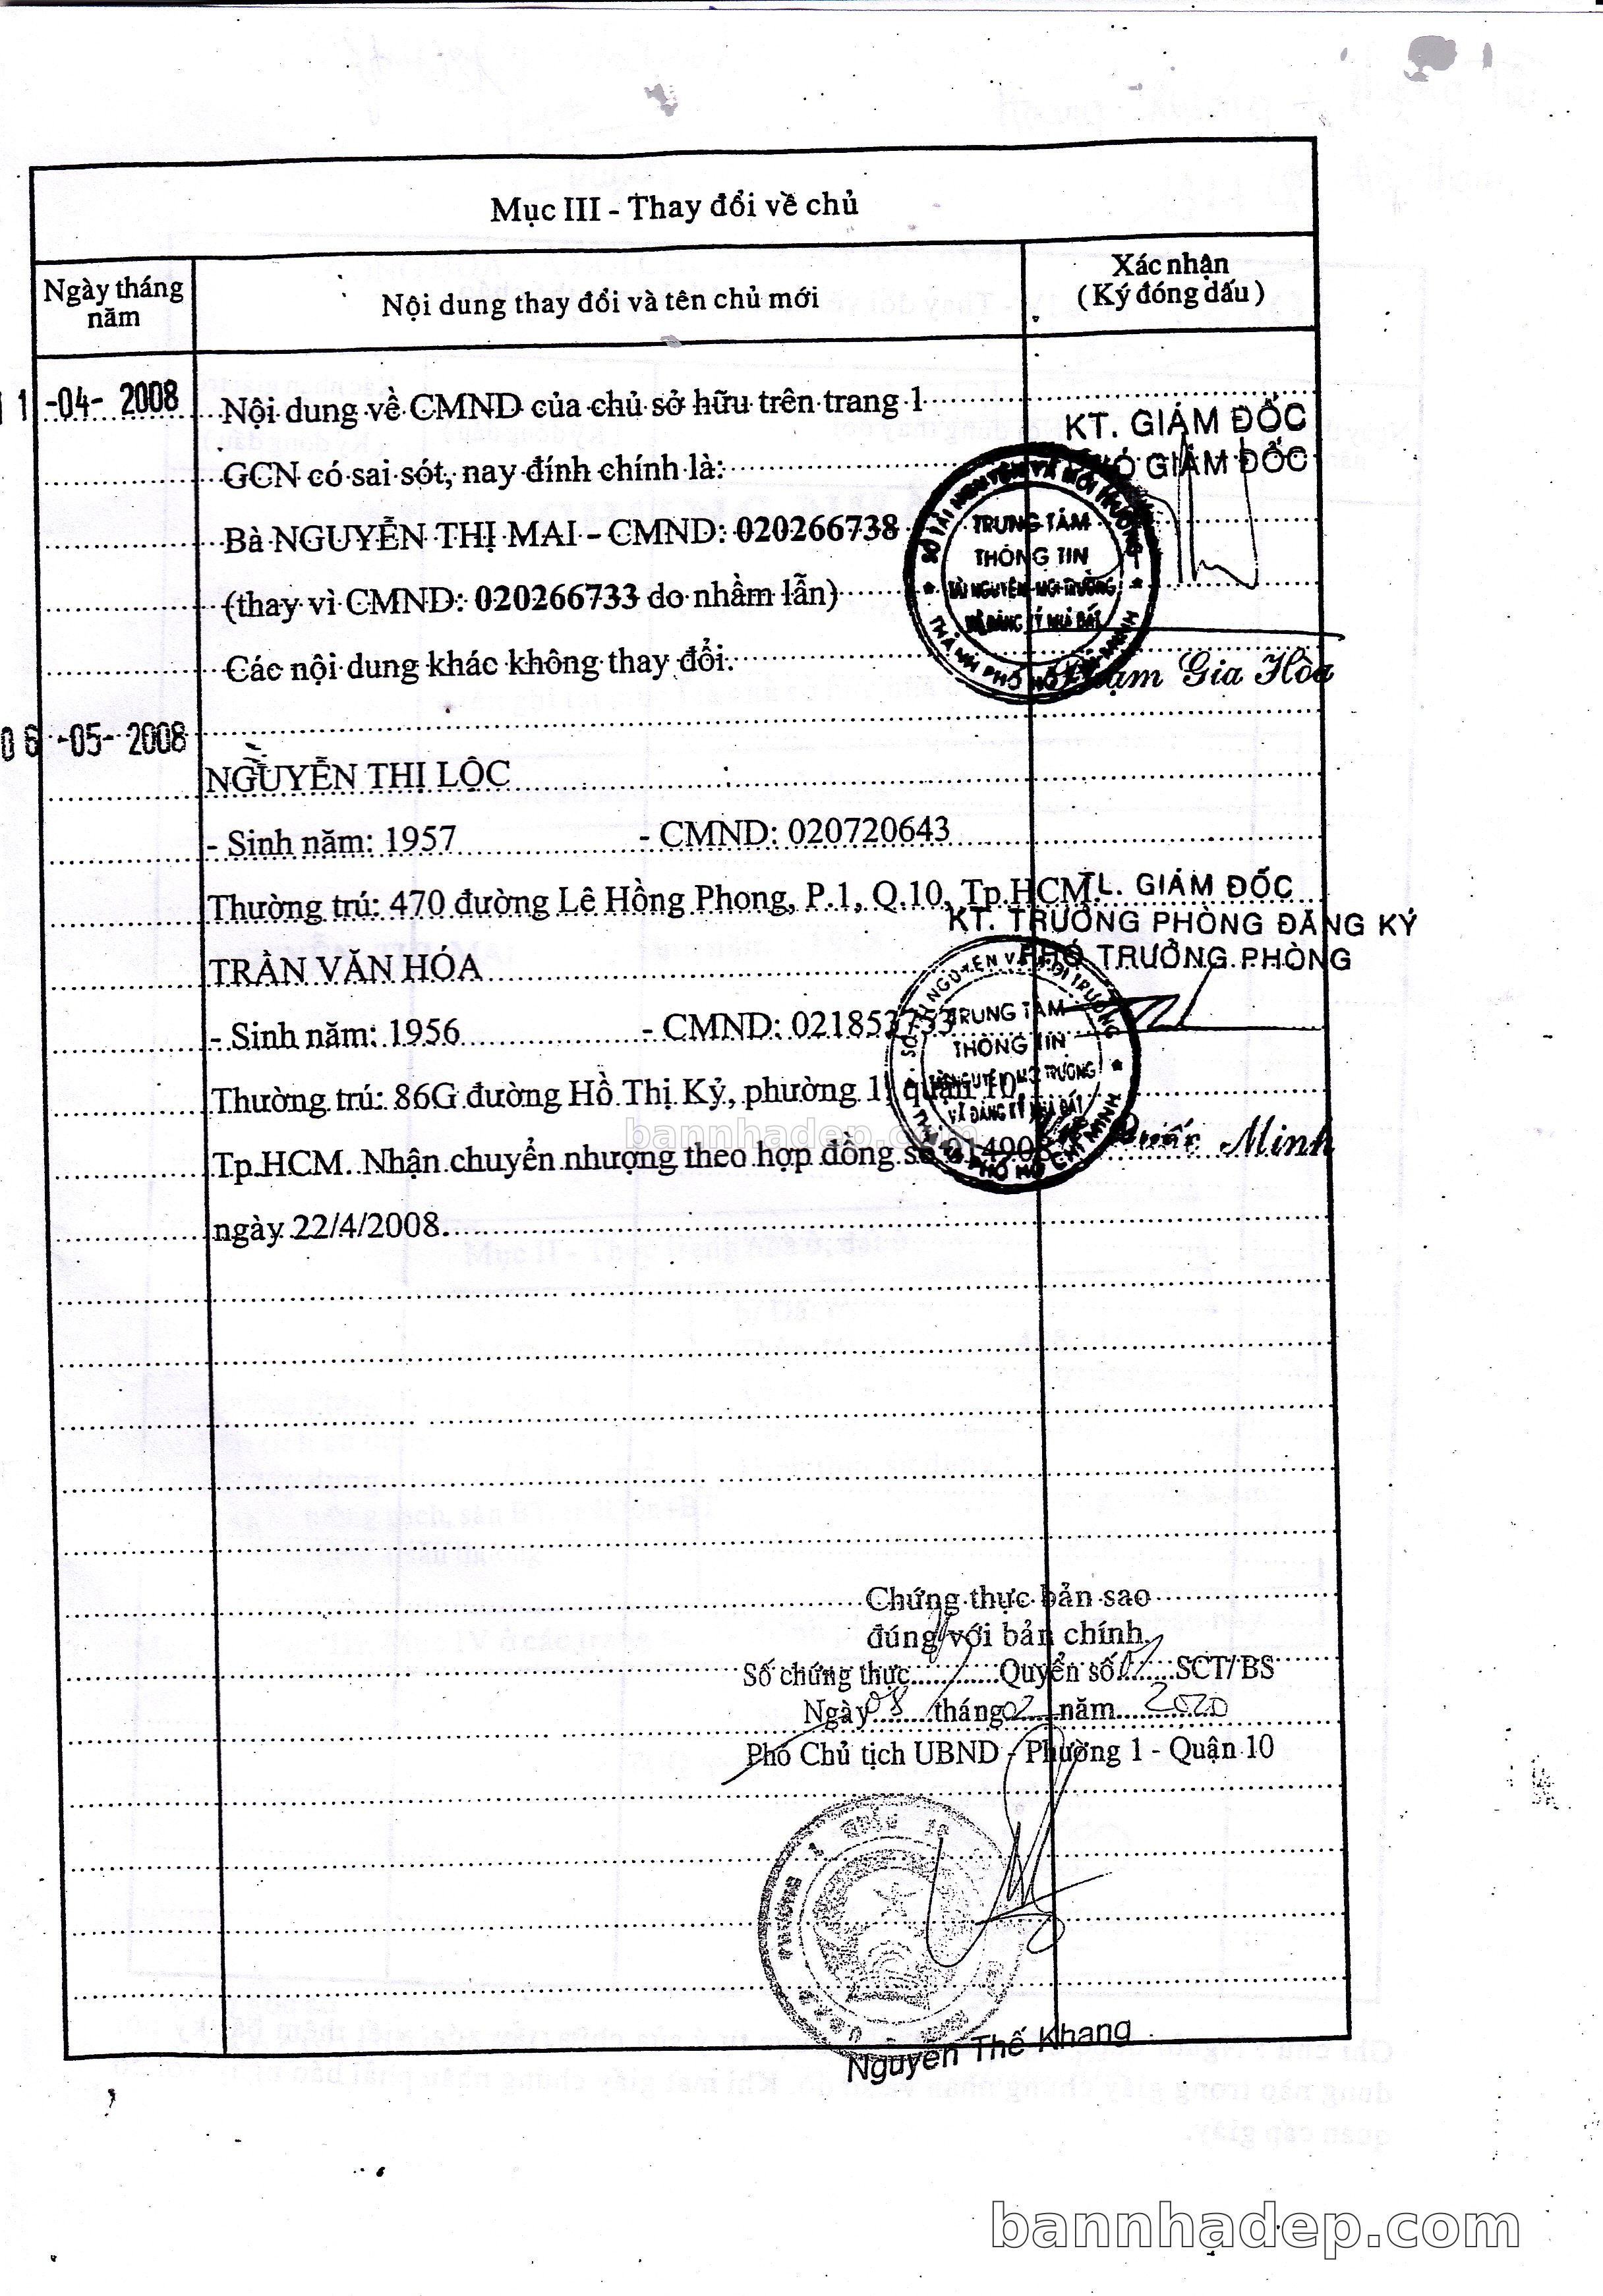 Mục III - Thay đổi về chủ
Ngày tháng năm
Nội dung thay đổi và tên chủ mới
Xác nhận
(Ký đóng dấu)
1 -04- 2008
Nội dung về CMND của chủ sở hữu trên trang 1
KT. GIÁM ĐỐC
GIÁM ĐỐC
GCN có sai sót, nay đính chính là:
Bà NGUYỄN THỊ MAI - CMND: 020266738
(thay vì CMND: 020266733 do nhầm lẫn)
Các nội dung khác không thay đổi.
SỞ TÀI NGUYÊN VÀ MÔI TRƯỜNG
TRUNG TÂM
THÔNG TIN
TÀI NGUYÊN MÔI TRƯỜNG
VÀ ĐĂNG KÝ NHÀ ĐẤT
THÀNH PHỐ HỒ CHÍ MINH
Phạm Gia Hòa
06 -05- 2008
NGUYỄN THỊ LỘC
- Sinh năm: 1957 - CMND: 020720643
Thường trú: 470 đường Lê Hồng Phong, P.1, Q.10, Tp.HCM.
TL. GIÁM ĐỐC
KT. TRƯỞNG PHÒNG ĐĂNG KÝ
PHÓ TRƯỞNG PHÒNG
TRẦN VĂN HÓA
- Sinh năm: 1956 - CMND: 021853753
Thường trú: 86G đường Hồ Thị Kỷ, phường 1, quận 10
Tp.HCM. Nhận chuyển nhượng theo hợp đồng số 014908
ngày 22/4/2008.
SỞ TÀI NGUYÊN VÀ MÔI TRƯỜNG
TRUNG TÂM
THÔNG TIN
TÀI NGUYÊN MÔI TRƯỜNG
VÀ ĐĂNG KÝ NHÀ ĐẤT
THÀNH PHỐ HỒ CHÍ MINH
Quốc Minh
bannhadep.com
Chứng thực bản sao
đúng với bản chính.
Số chứng thực............Quyển số 01 SCT/ BS
Ngày 08 tháng 02 năm 2020
Phó Chủ tịch UBND - Phường 1 - Quận 10
Nguyễn Thế Khang
bannhadep.com